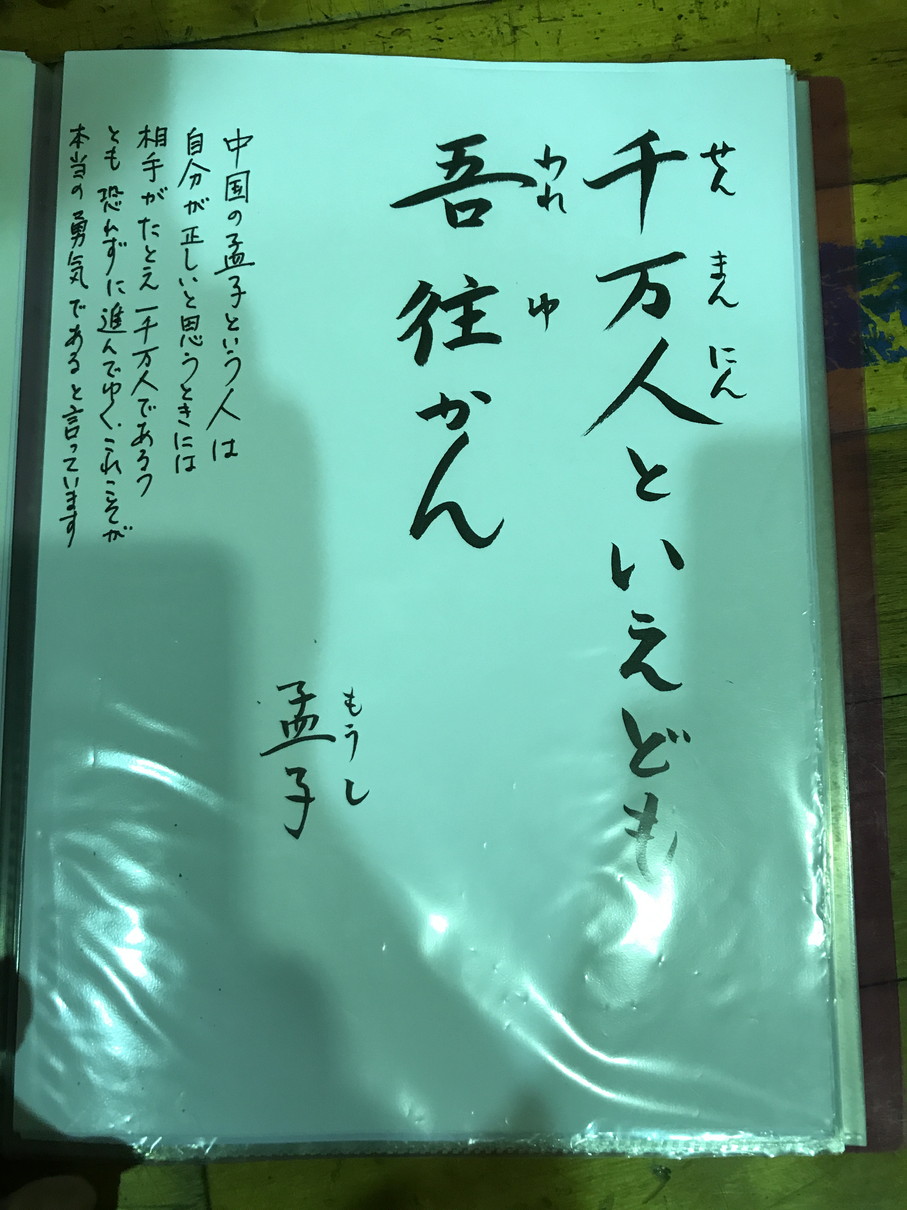 千万人といえども
せんまんにん
吾往かん
われゆ
孟子
もうし
中国の孟子という人は
自分が正しいと思うときには
相手がたとえ一千万人であろう
とも恐れずに進んでゆく.これこそが
本当の勇気であると言っています